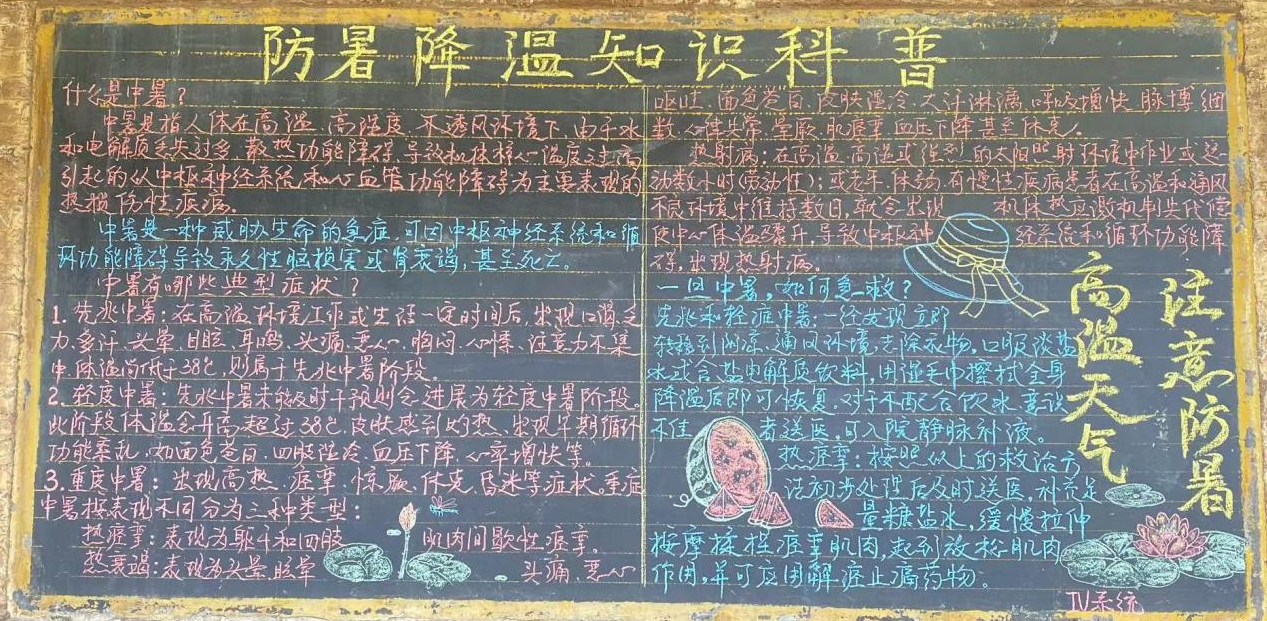 防暑降温知识科普
什么是中暑？
中暑是指人体在高温、高湿度、不透风环境下,由于水
和电解质丢失过多、散热功能障碍,导致机体核心温度过高
引起的以中枢神经系统和心血管功能障碍为主要表现的
热损伤性疾病。
中暑是一种威胁生命的急症,可因中枢神经系统和循
环功能障碍导致永久性脑损害或肾衰竭,甚至死亡。
中暑有哪些典型症状？
1.先兆中暑:在高温环境工作或生活一定时间后,出现口渴、乏
力、多汗、头晕、目眩、耳鸣、头痛、恶心、胸闷、心悸、注意力不集
中,体温尚低于38℃,则属于先兆中暑阶段。
2.轻度中暑:先兆中暑未能及时干预则会进展为轻度中暑阶段。
此阶段体温会升高超过38℃,皮肤感到灼热,出现早期循环
功能紊乱,如面色苍白、四肢湿冷、血压下降、心率增快等。
3.重度中暑:出现高热、痉挛、惊厥、休克、昏迷等症状。重症
中暑按表现不同分为三种类型:
热痉挛:表现为躯干和四肢 肌肉间歇性痉挛。
热衰竭:表现为头晕、眩晕 头痛、恶心
呕吐、面色苍白、皮肤湿冷、大汗淋漓、呼吸增快、脉搏细
数、心律失常、晕厥、肌痉挛、血压下降甚至休克。
热射病:在高温、高湿或强烈的太阳照射环境中作业或运
动数小时(劳动性);或老年、体弱、有慢性疾病患者在高温和通风
不良环境中维持数日,就会出现 机体热应激机制失代偿
使中心体温骤升,导致中枢神 经系统和循环功能障
碍,出现热射病。
一旦中暑,如何急救？
先兆和轻症中暑:一经发现立即
转移到阴凉、通风环境,去除衣物,口服淡盐
水或含盐电解质饮料,用湿毛巾擦拭全身
降温后即可恢复。对于不配合饮水、意识
不佳 者送医,可入院静脉补液。
热痉挛:按照以上的救治方
法初步处理后及时送医,补充足
量糖盐水,缓慢拉伸
按摩揉捏痉挛肌肉,起到放松肌肉
作用,并可应用解痉止痛药物。
注意防暑
高温天气
IV系统